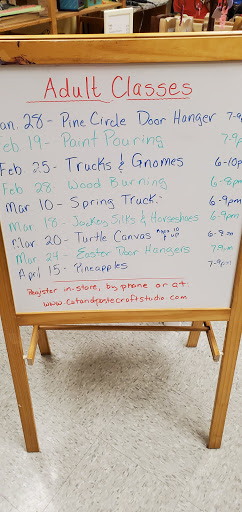 Adult Classes
an 28 - Pine Circle Door Hanger 7-9p
eb 19 - Paint Pouring 7-9p
Feb 25 - Trucks & Gnomes 6-10p
Feb 28 - Wood Burning 6-8pm
Mar 10 - Spring Truck - 6-9pm
Mar 18 - Jockey Silks & Horseshoes 6-9pm
Mar 20 - Turtle Canvas Ages 10 & up 6-8:30
Mar 24 - Easter Door Hangers 7-9pm
April 15 - Pineapples 7-9pm
Register in-store, by phone or at
www.cutandpastecraftstudio.com